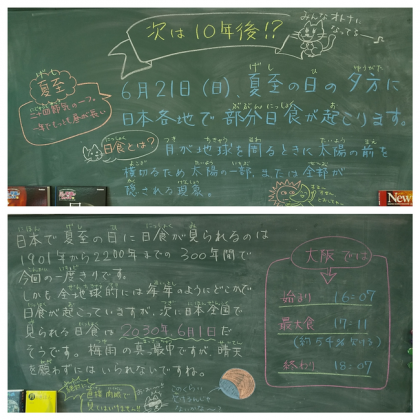 次は10年後!?
みんなオトナに
なってる〜
げし
夏至
二十四節気の一つ。
一年でもっとも昼が長い
6月21日(日)、夏至の日の夕方に
日本各地で部分日食が起こります。
日食とは?
月が地球を周るときに太陽の前を
横切るため太陽の一部、または全部が
隠される現象。
New
日本で夏至の日に日食が見られるのは
1901年から2200年までの300年間で
今回の一度きりです。
しかも全地球的には毎年のようにどこかで
日食が起こっていますが、次に日本全国で
見られる日食は2030年6月1日だ
そうです。梅雨の真っ最中ですが、晴天
を願わずにはいられないですね。
大阪では
始まり 16:07
最大食 17:11
(約54%欠ける)
終わり 18:07
直接肉眼で
見てはいけません!!
このくらい